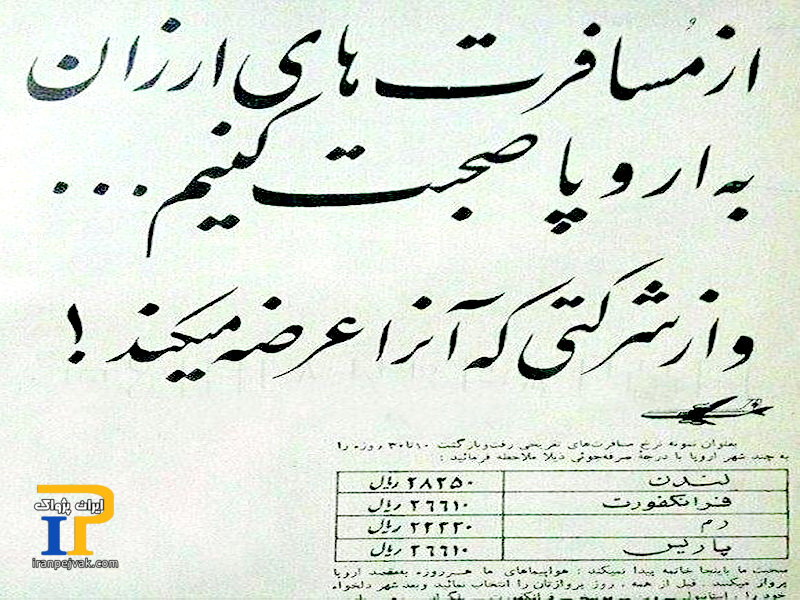 از مُسافرت های ارزان
به اروپا صحبت کنیم...
و از شرکتی که آنرا عرضه میکند!
بعنوان نمونه نرخ مسافرت‌های تفریحی رفت‌وبازگشت ۱۰تا۳۰ روزه را
به چند شهر اروپا با درجهٔ صرفه‌جوئی ذیلا ملاحظه فرمائید :
لندن ۲۸۲۵۰ ریال
فرانکفورت ۲۶۶۱۰ ریال
رم ۲۲۲۲۰ ریال
پاریس ۲۶۶۱۰ ریال
صحبت ما باینجا خاتمه پیدا نمیکند : هواپیماهای ما هرروزه بمقصد اروپا
پرواز میکنند . قبل از همه ، روز پروازتان را انتخاب نمائید وبعد شهر دلخواه
خود را . استانبول
ایران پژواک
iranpejvak.com